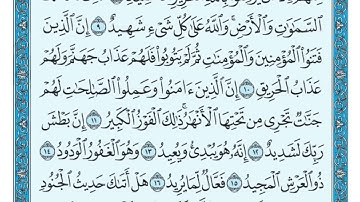 ٱلسَّمَٰوَٰتِ وَٱلْأَرْضِ ۚ وَٱللَّهُ عَلَىٰ كُلِّ شَىْءٍ شَهِيدٌ ٩ إِنَّ ٱلَّذِينَ
فَتَنُوا۟ ٱلْمُؤْمِنِينَ وَٱلْمُؤْمِنَٰتِ ثُمَّ لَمْ يَتُوبُوا۟ فَلَهُمْ عَذَابُ جَهَنَّمَ وَلَهُمْ
عَذَابُ ٱلْحَرِيقِ ١٠ إِنَّ ٱلَّذِينَ ءَامَنُوا۟ وَعَمِلُوا۟ ٱلصَّٰلِحَٰتِ لَهُمْ
جَنَّٰتٌ تَجْرِى مِن تَحْتِهَا ٱلْأَنْهَٰرُ ۚ ذَٰلِكَ ٱلْفَوْزُ ٱلْكَبِيرُ ١١ إِنَّ بَطْشَ
رَبِّكَ لَشَدِيدٌ ١٢ إِنَّهُۥ هُوَ يُبْدِئُ وَيُعِيدُ ١٣ وَهُوَ ٱلْغَفُورُ ٱلْوَدُودُ ١٤
ذُو ٱلْعَرْشِ ٱلْمَجِيدُ ١٥ فَعَّالٌ لِّمَا يُرِيدُ ١٦ هَلْ أَتَىٰكَ حَدِيثُ ٱلْجُنُودِ